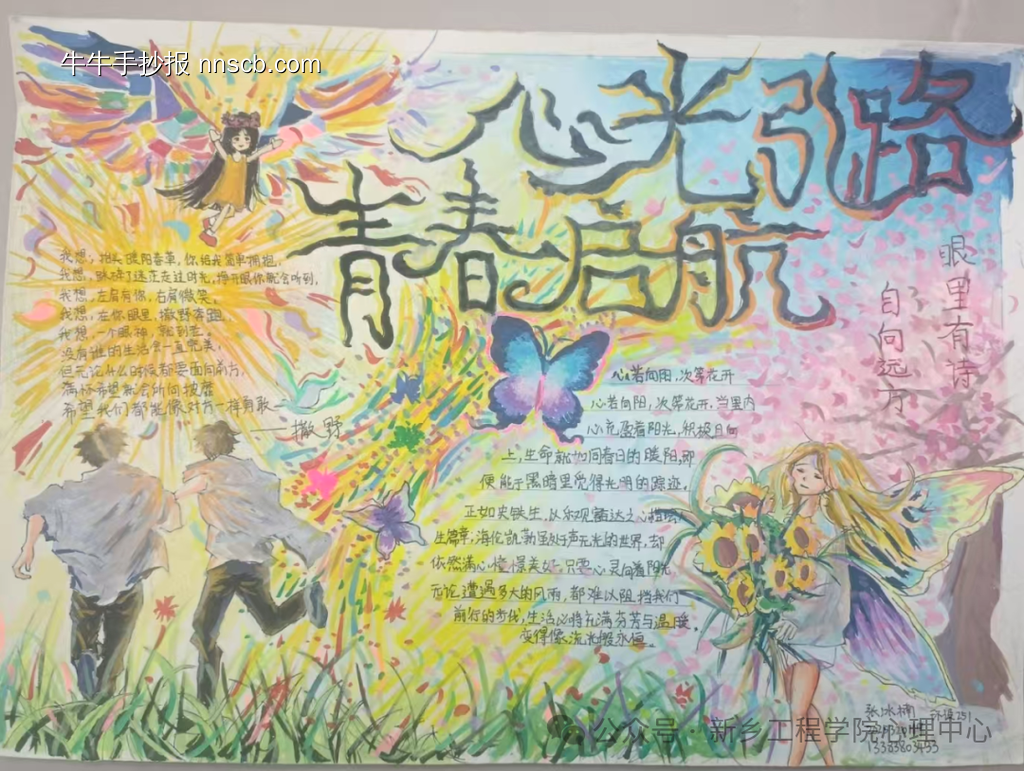 牛牛手抄报 nnscb.com
心光引路
青春启航
眼里有诗
自向远方
我想，抬头暖阳春草，你给我简单拥抱，
我想，踩碎了迷茫走过时光，睁开眼你就会听到，
我想，左肩有你，右肩微笑，
我想，在你眼里，撒野奔跑，
我想，一个眼神，就到老。
没有谁的生活会一直完美，
但无论什么时候都要面向前方，
满怀希望就会所向披靡
希望我们都能像对方一样勇敢
——撒野
心若向阳，次第花开
心若向阳，次第花开。当里内
心充盈着阳光，积极且向
上，生命就如同春日的暖阳，即
便能于黑暗里觉得光明的踪迹，
正如史铁生，从和观豁达之心
生篇章；海伦凯勒虽处于声无光的世界，却
依然满心憧憬美好。只要心灵向着阳光，
无论遭遇多大的风雨，都难以阻挡我们
前行的步伐，生活必将充满芬芳与温暖，
变得像流光般永恒。
张冰
公众号·新乡工程学院心理中心